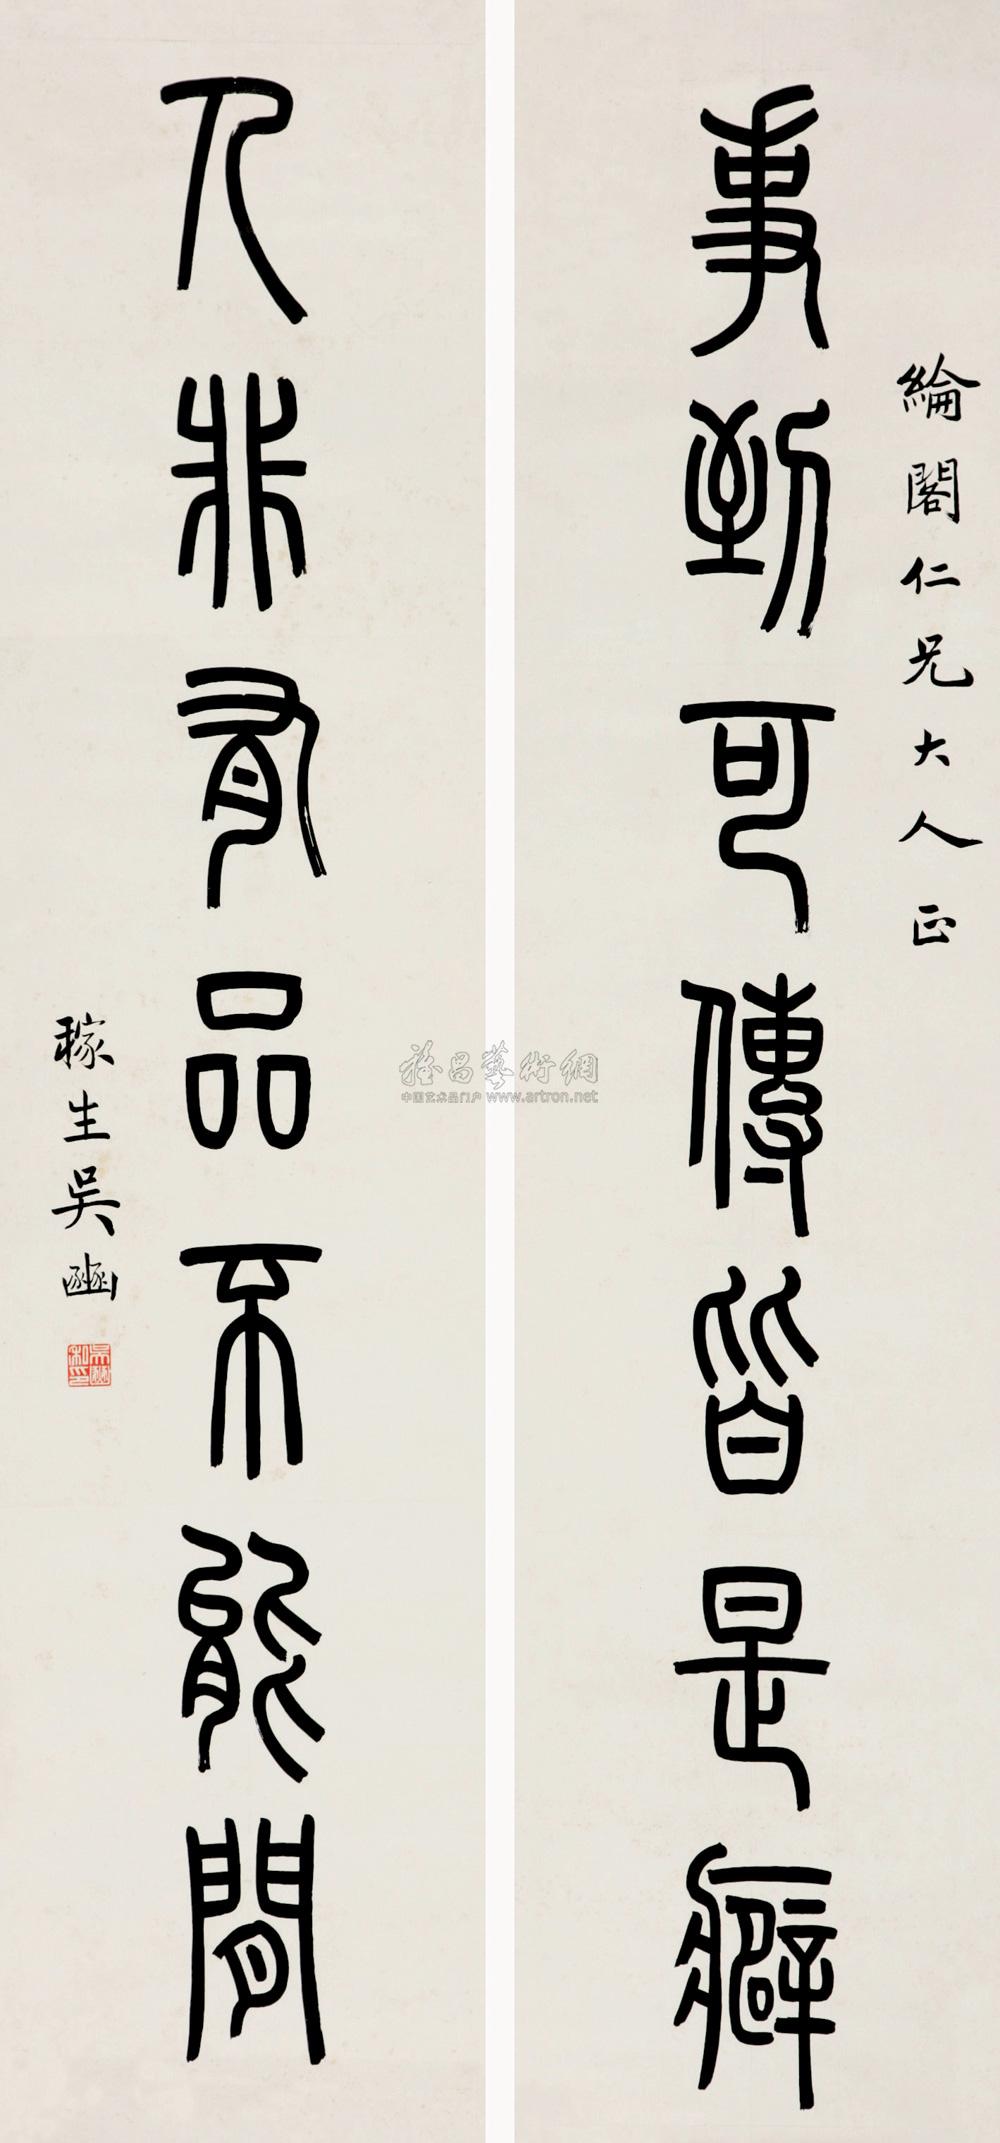 綸閣仁兄大人正
事到可傳皆是癖
人非有品不能閒
稼生吳豳
雅昌藝術網
中国艺术品门户 www.artron.net